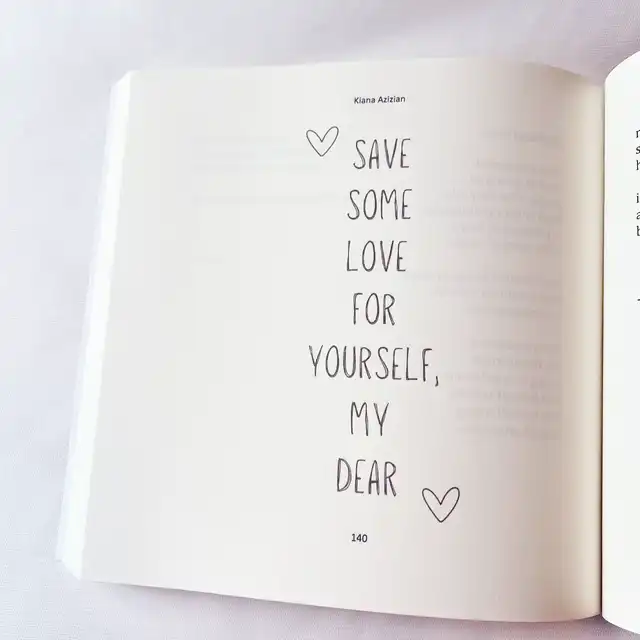 Kiana Azizian
SAVE
SOME
LOVE
FOR
YOURSELF,
MY
DEAR
140